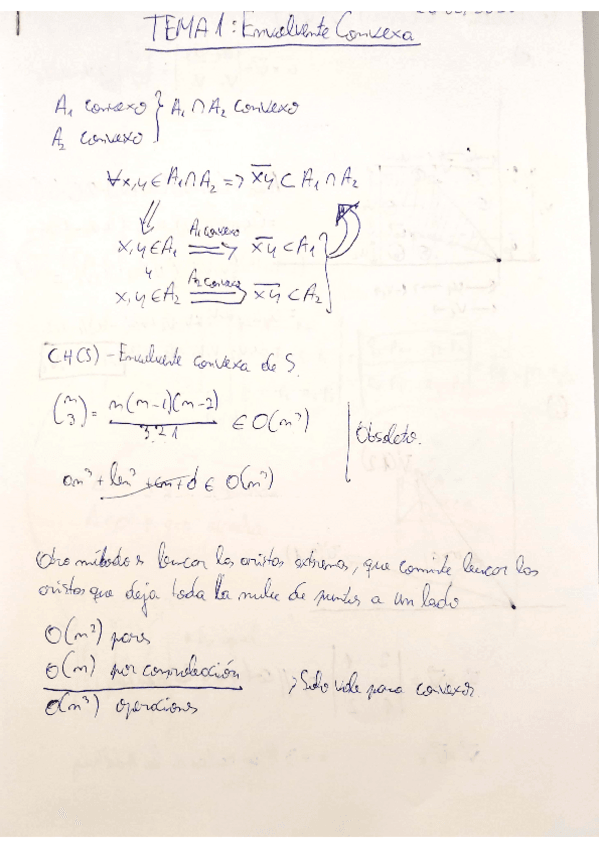 TEMA 1: Envolvente Convexa
A₁ convexo } A₁ ∩ A₂ convexo
A₂ convexo
∀x,y ∈ A₁ ∩ A₂ => x̅y̅ ⊂ A₁ ∩ A₂
x,y ∈ A₁ ==A₁ convexo==> x̅y̅ ⊂ A₁
y
x,y ∈ A₂ ==A₂ convexo==> x̅y̅ ⊂ A₂
CH(S) - Envolvente convexa de S.
(n 3) = n(n-1)(n-2) / 3·2·1 ∈ O(n³) | Obsoleto.
an³ + bn² + cn + d ∈ O(n³)
Otro método es buscar las aristas extremas, que consiste buscar las
aristas que deja toda la nube de puntos a un lado
O(n²) pares
O(n) por comprobación
O(n³) operaciones ; Solo vale para convexos